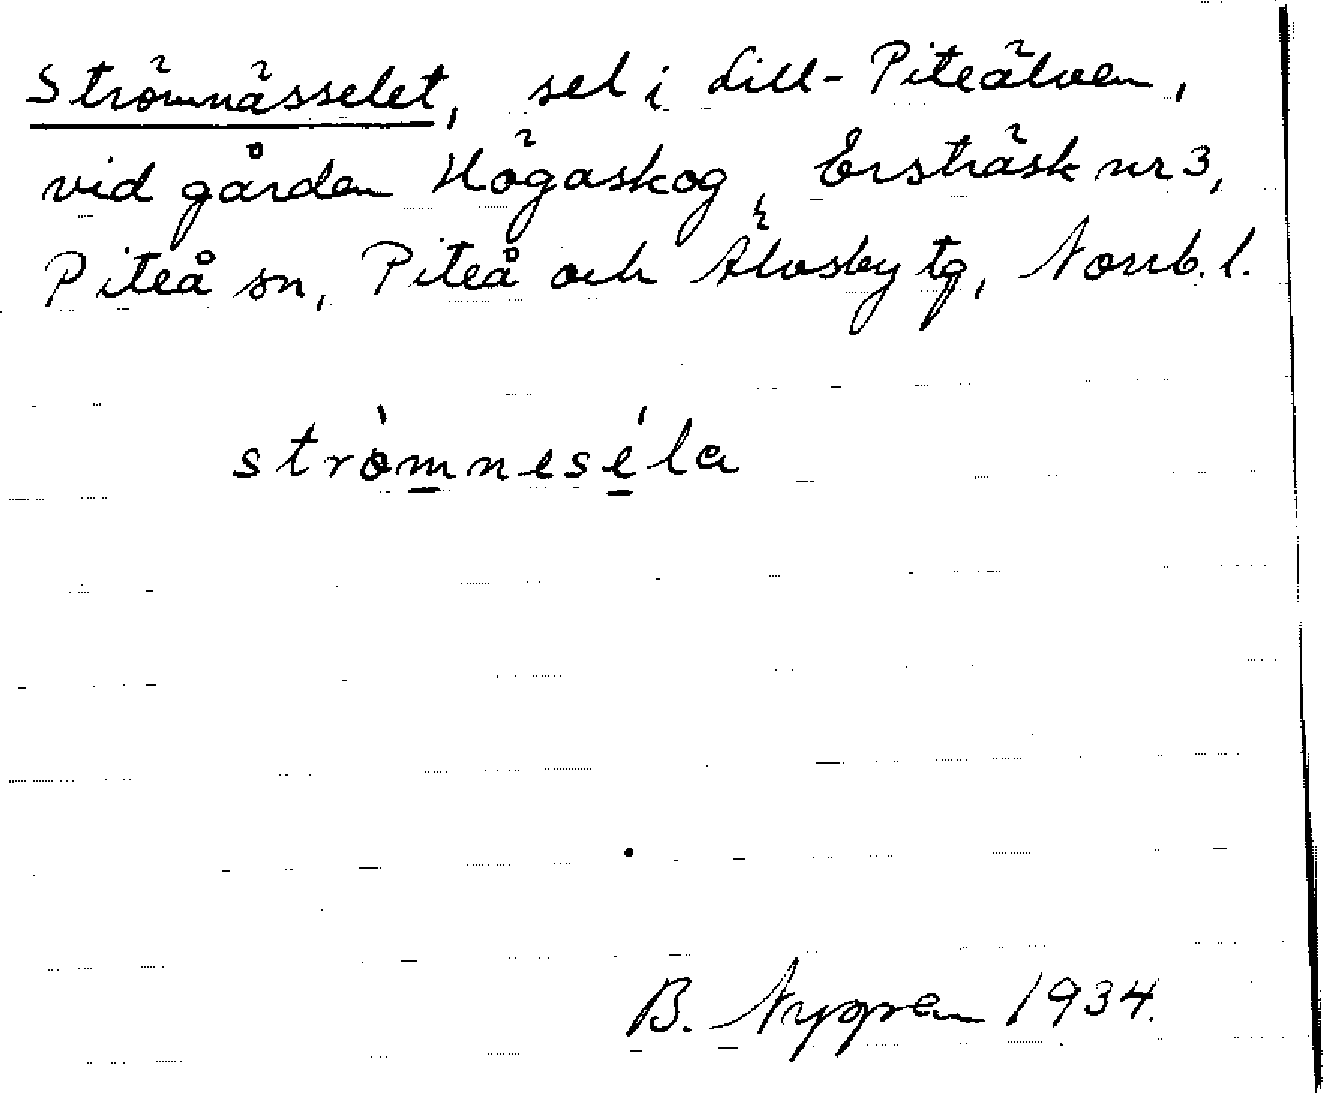 Strömnässelet, sel i Lill-Piteälven,
vid gården Högaskog, Ersträsk nr 3,
Piteå sn, Piteå och Älvsby tg, Norrb. l.
stròmneséla
B. Nygren 1934.